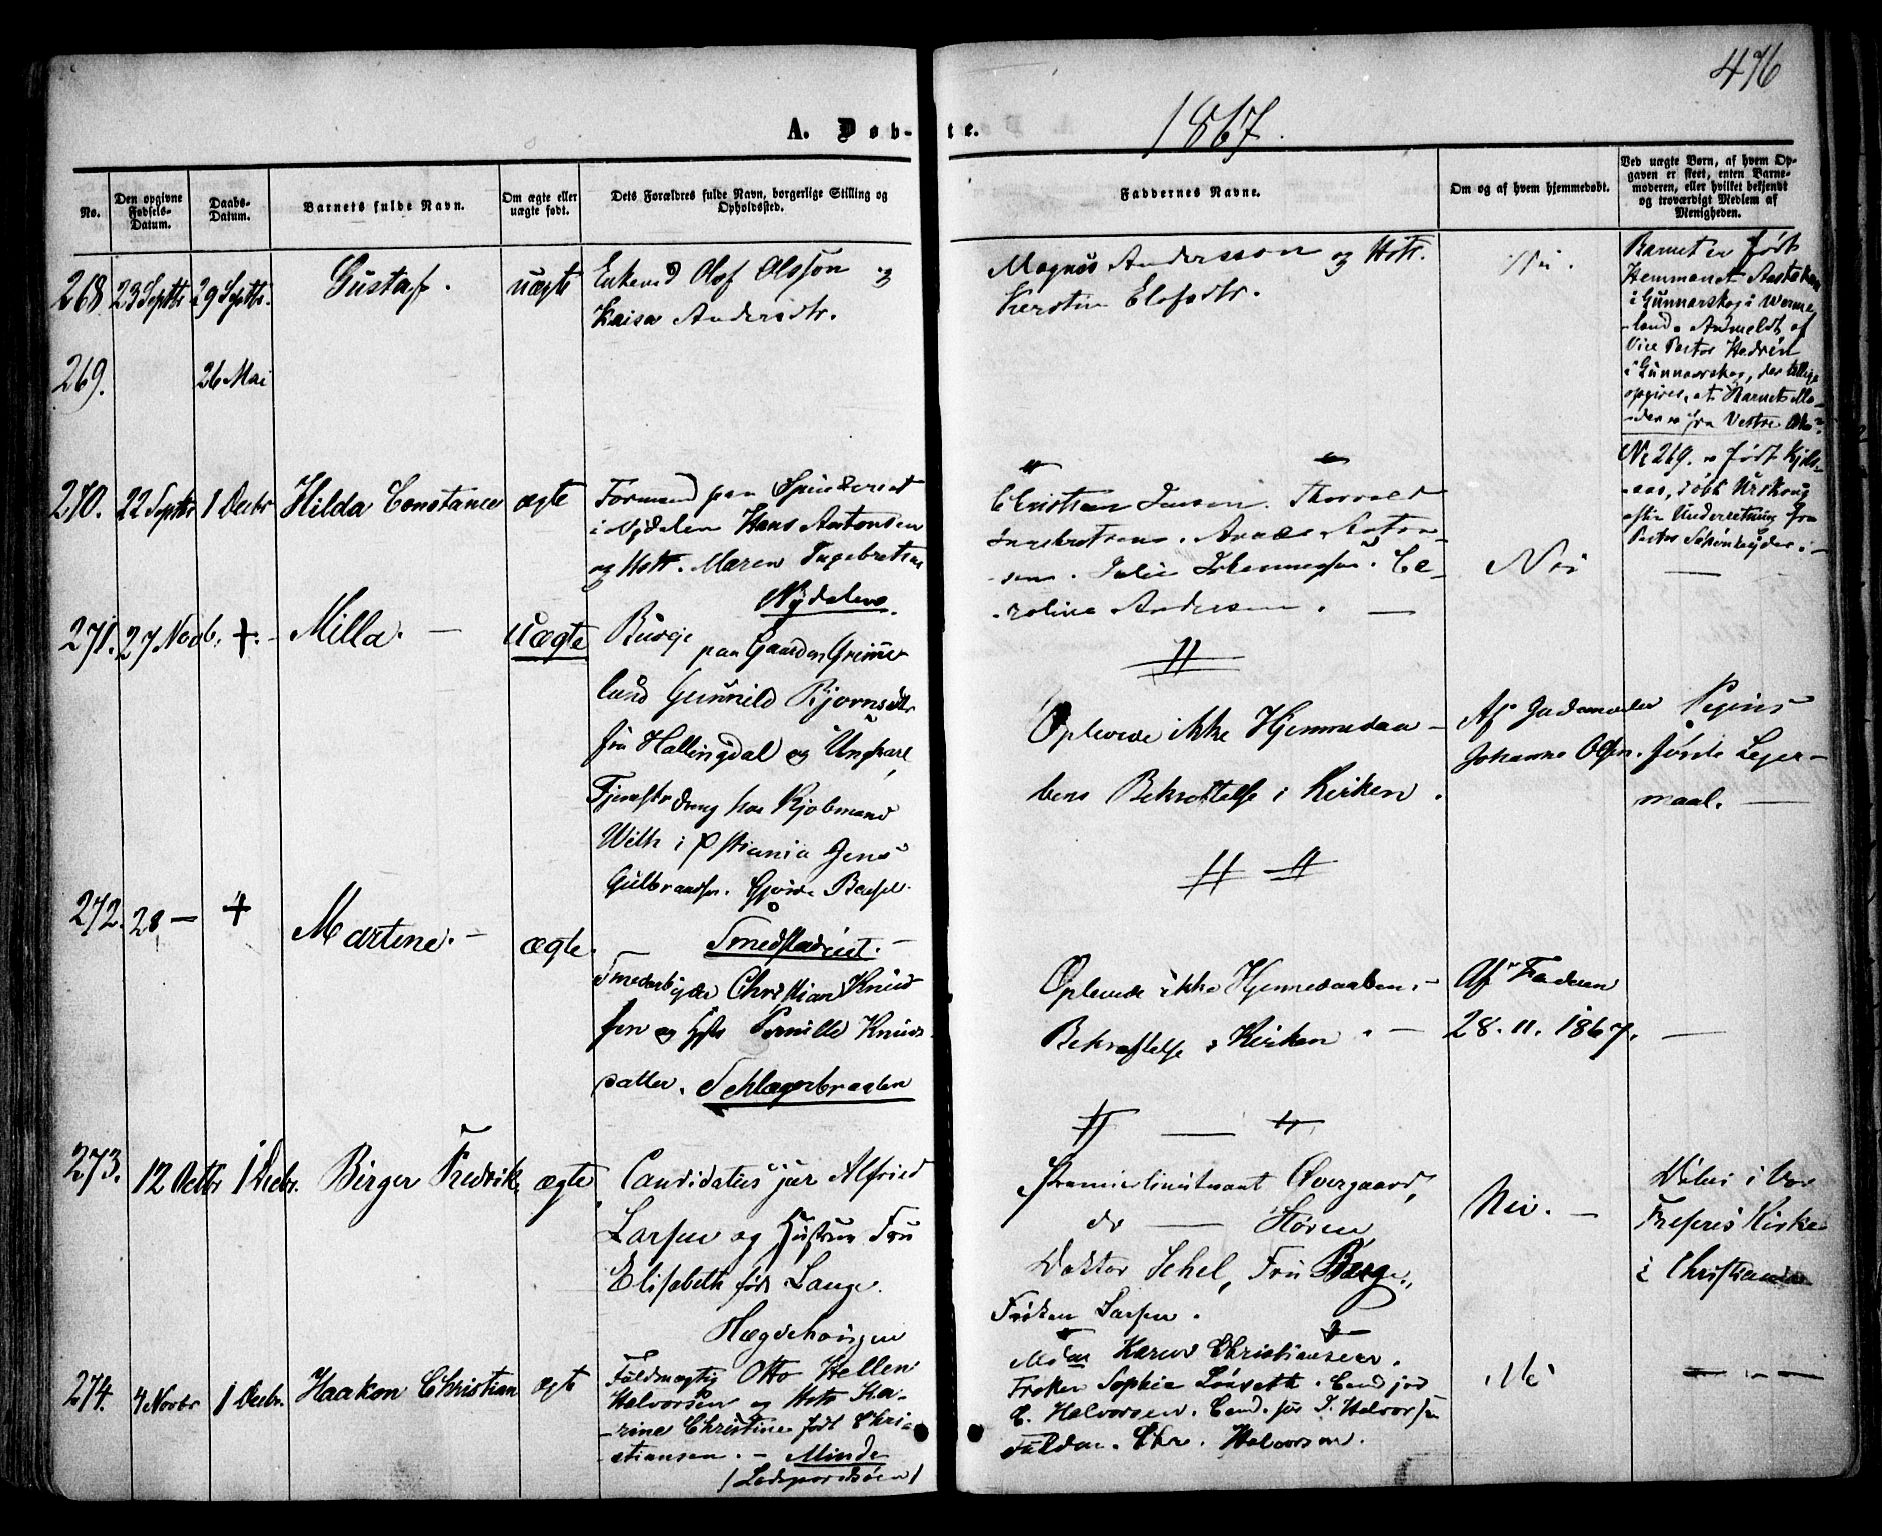 476
A. Døb-te. 1867.
No.
Den opgivne Fødsels-Datum.
Daabs-Datum.
Barnets fulde Navn.
Om ægte eller uægte født.
Dets Forældres fulde Navn, borgerlige Stilling og Opholdssted.
Faddernes Navne.
Om og af hvem hjemmedøbt.
Ved uægte Børn, af hvem Opgaven er skeet, enten Barnemoderen, eller hvilket bekjendt og troværdigt Medlem af Menigheden.
268. 23 Septbr 29 Septbr. Gustaf. uægte
Enkemd Olof Olsson og
Kaisa Andersdtr.
Magnus Andersson og Hstr.
Kerstin Elofsdtr.
Nei.
Barnet er født
Hemmanet
i Gunnarskog i Werme-
land. Anmeldt af
Vice Pastor Hedrén
i Gunnarskog, der tillige
opgiver, at Barnets Mo-
der er fra Vestre
269. 26 Mai
Nr 269. er født
after Underretning fra
Pastor
270. 22 Septbr 1 Decbr Hilda Constance ægte
Formand paa Spinderiet
i Nydalen Hans Antonsen
og Hstr. Maren Ingebretsen
Nydalen.
Christian Jensen. Thorvald
Ingebretsen. Anders Anton-
sen. Julie Johannessen. Ca-
roline Andersen. —
Nei —
271. 27 Novb. +. - Milla. — uægte
Budeje
paa Gaarden Grime-
lund Gunnild Bjornsdtr
fra Hallingdal og Ungkarl,
Tjenestedreng hos Kjøbmand
Wilh i Xstiania Jens
Gulbrandsen.
Smedstadeiet. —
Oplevede ikke Hjemmedaa-
bens Bekræftelse i Kirken.
Af Jordemoder
Johanne Olsen.
Pigens
første Leier-
maal. —
272. 28 — + Martine. — ægte.
Christian Knud-
sen og Hstr Pernille Knuds-
datter. Schlagerbraaten
Oplevede ikke Hjemmedaaben. -
Bekræftelse i Kirken. —
Af Faderen
28. 11. 1867. —
273. 12 Octbr 1 Decbr. Birger Fredrik ægte
Candidatus jur Alfried
Larsen og Hustru Fru
Elisabeth født Lange.
Hægdehaugen
Premierlieutenant Overgaard,
do —
Doktor Schel, Fru Berge,
Frøken Larsen.
Nei. —
Døbt i Vor
Frelsers Kirke
i Christiania
274. 4 Novbr 1 Decbr. Haakon Christian ægte
Fuldmægtig Otto Hellen
Halvorsen og Hstr Ka-
rine Christine født Chri-
stiansen. — Minde
Mdm Karen Christiansen.
Frøken Sophie Løvseth. Cand jur
C. Halvorsen. Cand. jur J. Halvorsen
Chr. Halvorsen.
Nei — „ —